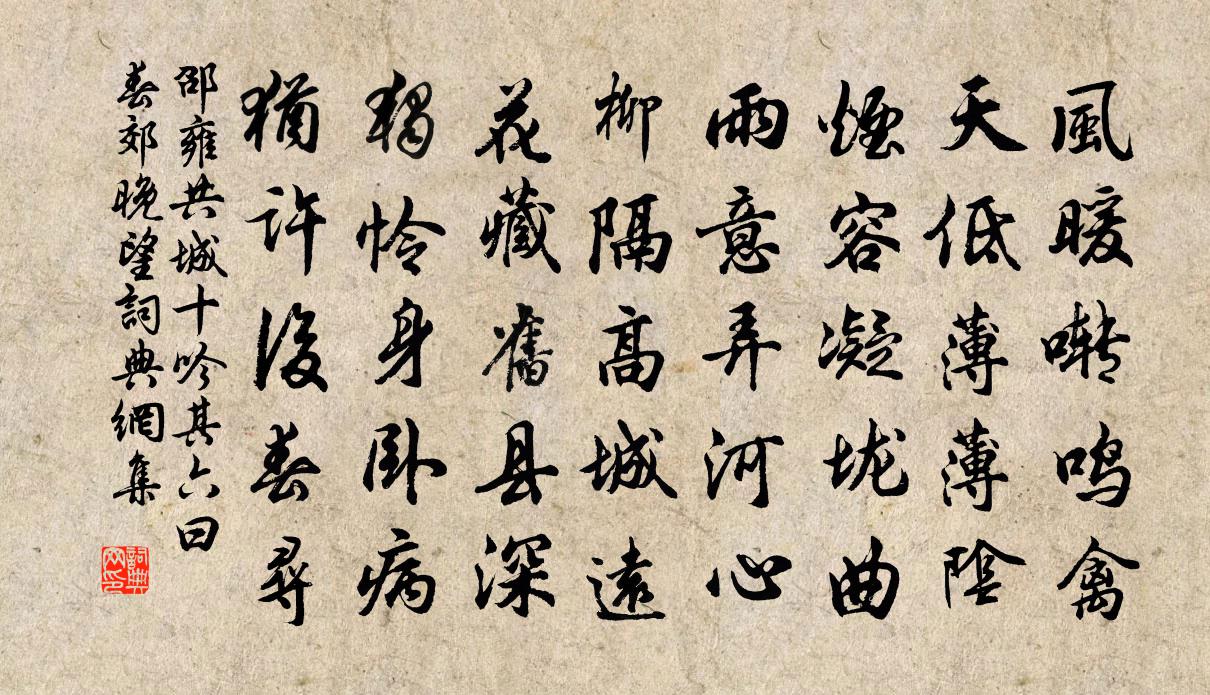 風暖啭鸣禽
天低薄薄陰
煙容凝垅曲
雨意弄河心
柳隔高城遠
花藏舊县深
獨怜身卧病
猶许後春尋
邵雍共城十吟其六曰
春郊晚望詞典網集
詞典
网印